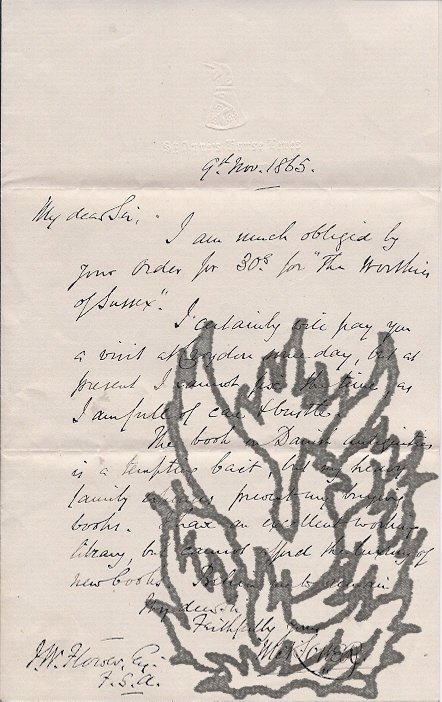 St Anne's House Lewes
9th Nov. 1865.
My dear Sir,
I am much obliged by
your order for 30s for "The Worthies
of Sussex".
I certainly will pay you
a visit at Croydon some day, but at
present I cannot fix the time, as
I am full of care & bustle.
The book on Danish antiquities
is a tempting bait but my heavy
family expenses prevent my buying
books. I have an excellent working
library, but cannot afford the luxury of
new books. Believe me to remain
My dear Sir
Faithfully yours
M A Lower
J. W. Flower, Esq.
F.S.A.